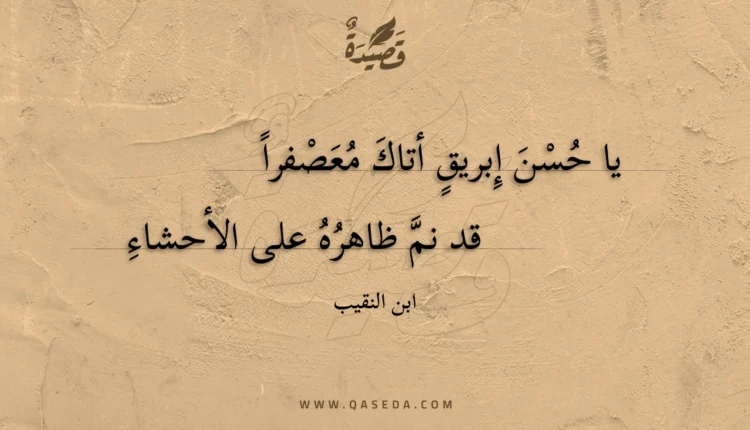 قَصِيدَةٌ
يا حُسْنَ إِبريقٍ أتاكَ مُعَصْفراً
قد نمَّ ظاهرُهُ على الأحشاءِ
ابن النقيب
WWW.QASEDA.COM